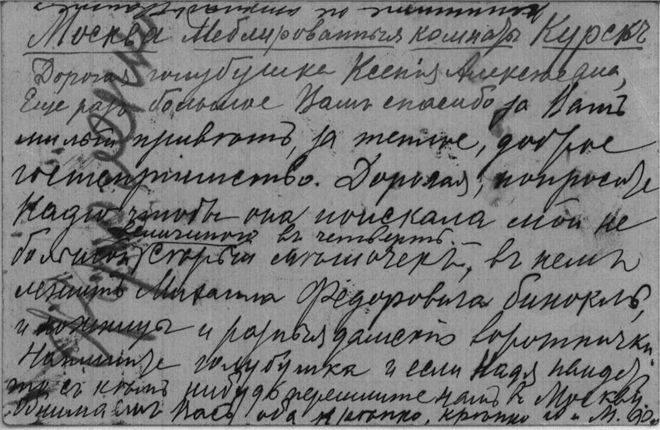 по
Москва Меблированныя комнаты Курскъ
Дорогая голубушка Ксенія Александровна,
Еще разъ большое Вамъ спасибо за Вашъ
милый привѣтъ, за теплое, доброе
гостепріимство. Дорогая, попросите
Надю чтобы она поискала мой не
величиною въ четверть
большой старый мѣшочекъ, въ немъ
лежитъ Михаила Федоровича бинокль,
и ножницы и разныя дамскія воротнички
Напишите голубушка и если Надя найдетъ
то съ кѣмъ нибудь перешлите намъ въ Москву
Обнимаемъ Васъ оба крѣпко, крѣпко и М. Ф.